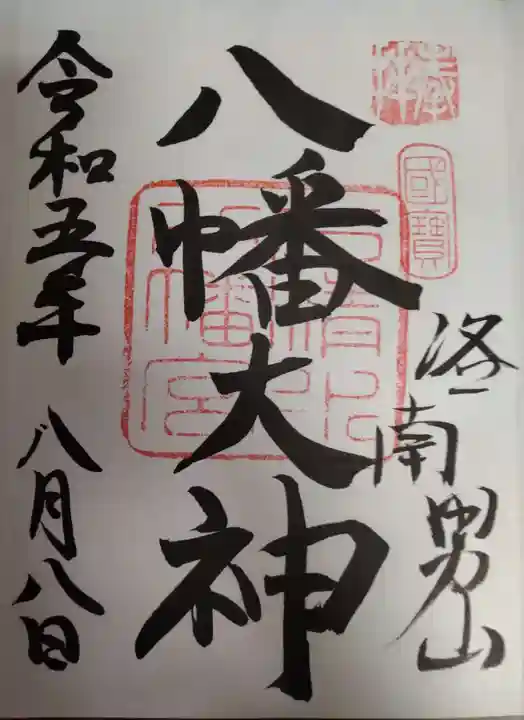 奉拝
國寶
洛南男山
八幡大神
石清水八幡宮
令和五年 八月八日